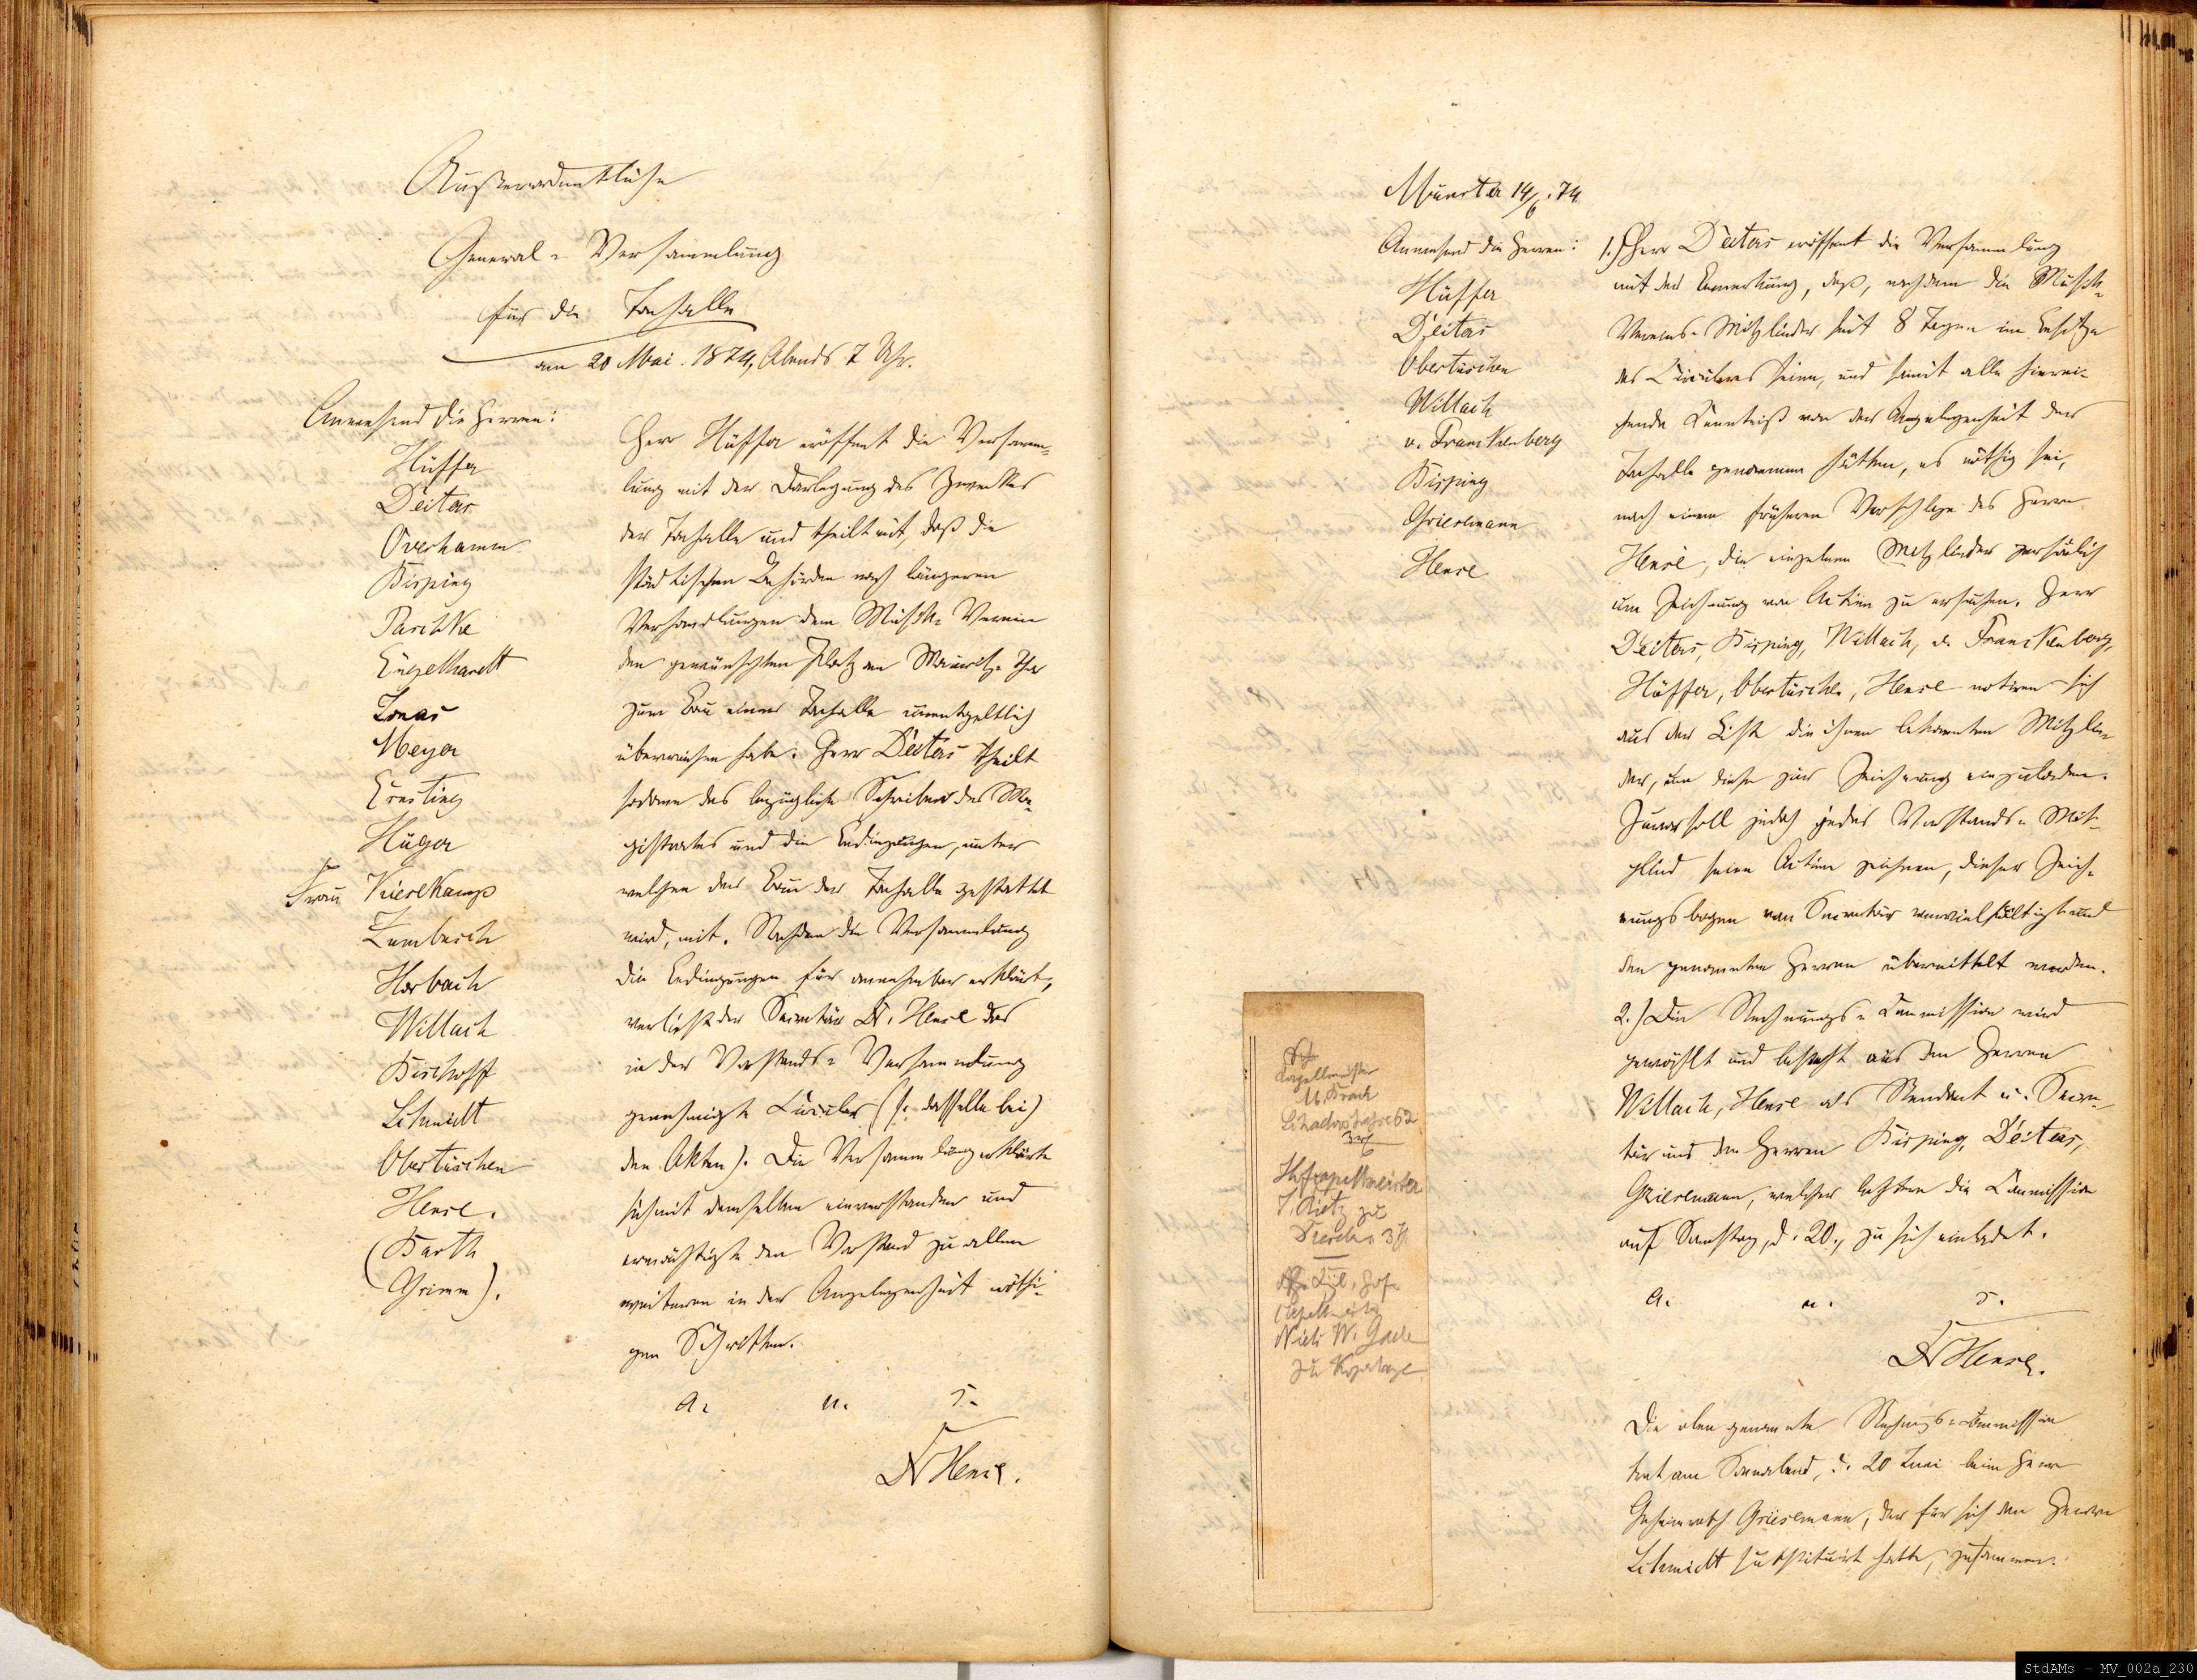 Außerordentliche
General-Versammlung
für die Tonhalle
am 20 Mai. 1874, Abends 7 Uhr.
Anwesend die Herren:
Hüffer
Deiters
Overhamm
Bisping
Paschke
Engelhardt
Jonas
Meyer
Ernsting
Hüger
Frau Kieskamp
Zumbusch
Horbach
Willach
Bischoff
Schmidt
Obertüschen
Hense.
(Barth
Grimm).
Herr Hüffer eröffnet die Versamm-
lung mit der Darlegung des Zweckes
der Tonhalle und theilt mit, daß die
städtischen Behörden nach längeren
Verhandlungen dem Musik-Verein
den gewünschten Platz am Mauritz-Thor
zum Bau einer Tonhalle unentgeltlich
überwiesen habe. Herr Deiters theilt
sodann das bezügliche Schreiben des Ma-
gistrates und die Bedingungen, unter
welchen der Bau der Tonhalle gestattet
wird, mit. Nachdem die Versammlung
die Bedingungen für annehmbar erklärt,
verliest der Secretär Dr. Hense das
in der Vorstands-Versammlung
genehmigte Circular (s. dasselbe bei
den Akten). Die Versammlung erklärte
sich mit demselben einverstanden und
ermächtigte den Vorstand zu allen
weiteren in der Angelegenheit nöthi-
gen Schritten.
a. u. s.
Dr Hense.
Münster 14/6.74
Anwesend die Herren:
Hüffer
Deiters
Obertüschen
Willach
v. Franckenberg
Bisping
Griesemann
Hense
1.) Herr Deiters eröffnet die Versammlung
mit der Bemerkung, daß, nachdem die Musik-
Vereins-Mitglieder seit 8 Tagen im Besitze
des Circulars seien, und somit alle hinrei-
chende Kenntniß von der Angelegenheit der
Tonhalle genommen hätten, es nöthig sei,
nach einem früheren Vorschlage des Herrn
Hense, die einzelnen Mitglieder persönlich
um Zeichnung von Actien zu ersuchen. Herr
Deiters, Bisping, Willach, v. Franckenberg,
Hüffer, Obertüschen, Hense notiren sich
aus der Liste die ihnen bekannten Mitglie-
der, um diese zur Zeichnung einzuladen.
Zuvor soll jedoch jedes Vorstands-Mit-
glied seine Actien zeichnen, dieser Zeich-
nungsbogen vom Secretär vervielfältigt und
den genannten Herren übermittelt werden.
2.) Die Rechnungs-Commission wird
gewählt und besteht aus den Herren
Willach, Hense als Rendant u. Secre-
tär und den Herren Bisping, Deiters,
Griesemann, welcher letztere die Commission
auf Samstag, d. 20., zu sich einladet.
a. u. s.
Dr Hense.
Die oben genannte Rechnungs-Commission
trat am Sonnabend, d. 20 Juni beim Herrn
Geheimrath Griesemann, der für sich den Herrn
Schmidt substituirt hatte, zusammen.
Capellmeister
Hofcapellmeister
J. Rietz zu
Dresden
Hof-
Capellmeister
Niels W. Gade
zu
StdAMs - MV_002a_230